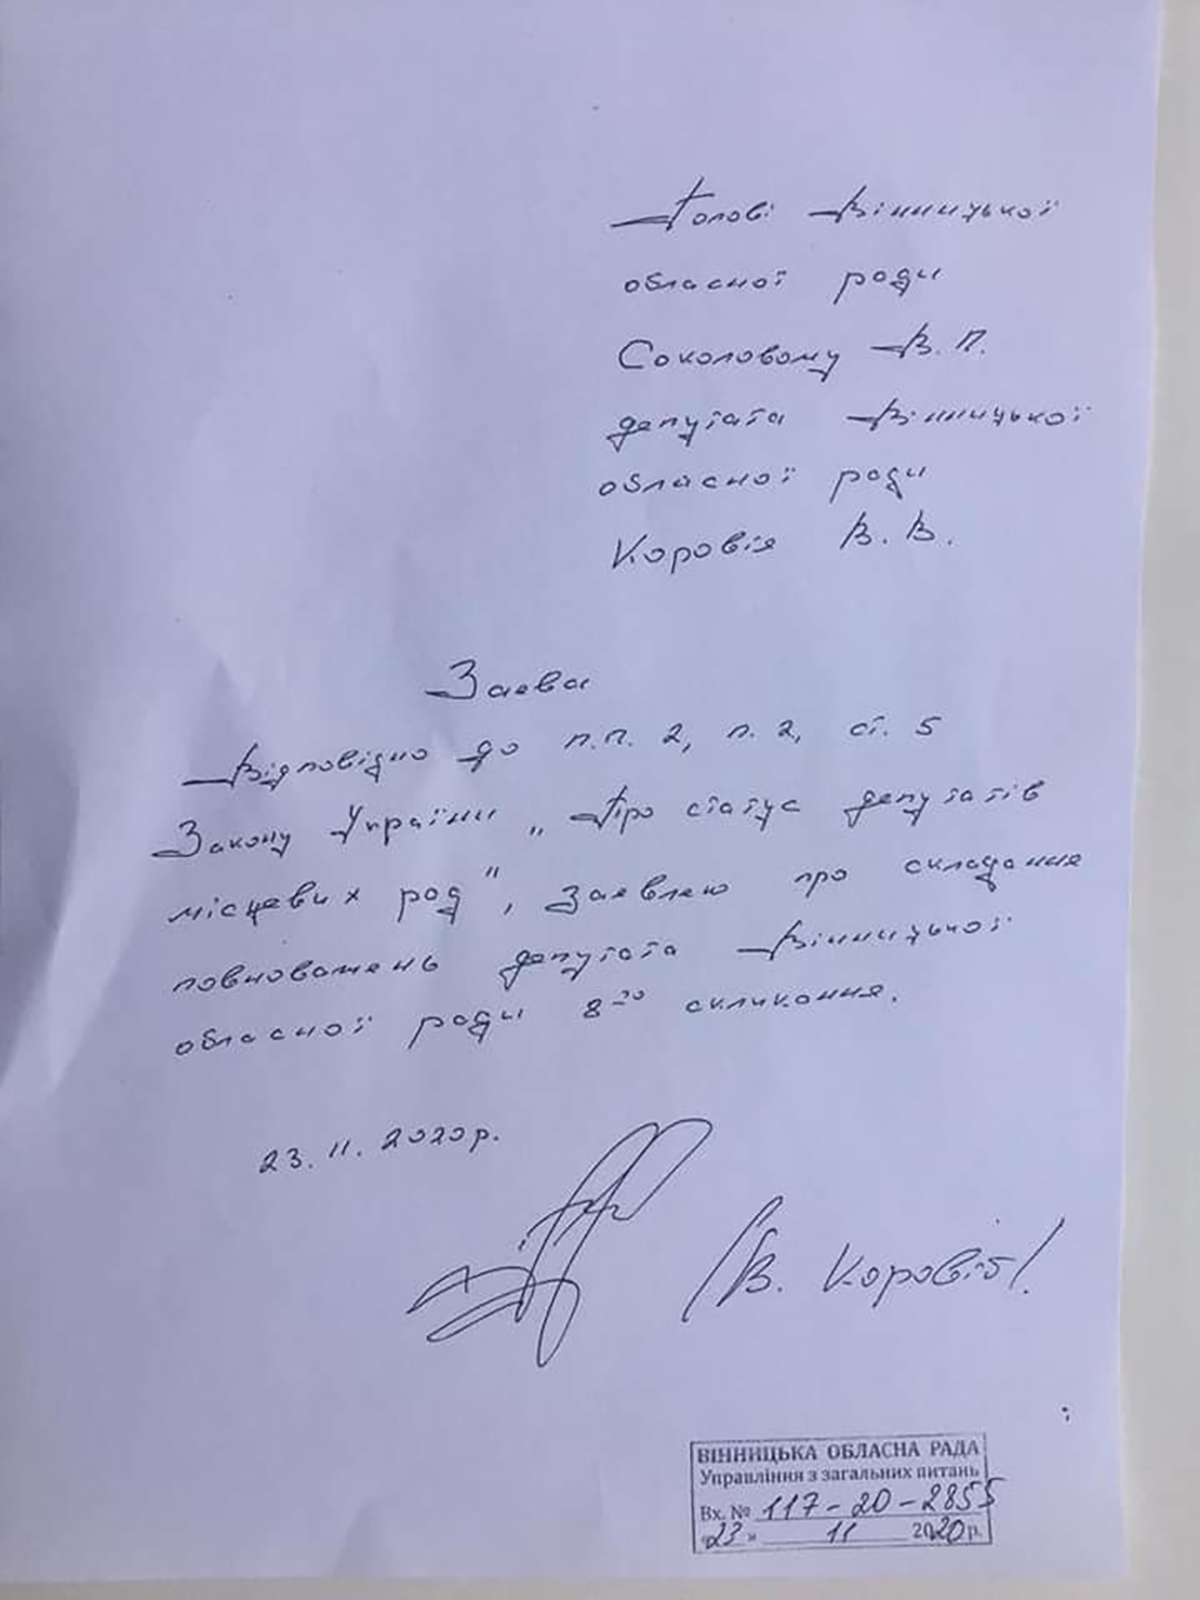 Голові Вінницької
обласної ради
Соколовому В.П.
депутата Вінницької
обласної ради
Коровія В.В.
Заява
Відповідно до п.п. 2, п. 2, ст. 5
Закону України „Про статус депутатів
місцевих рад", заявляю про складання
повноважень депутата Вінницької
обласної ради 8го скликання.
23.11.2020р.
/В. Коровій/.
ВІННИЦЬКА ОБЛАСНА РАДА
Управління з загальних питань
Вх. № 117-20-2855
"23" 11 2020 р.